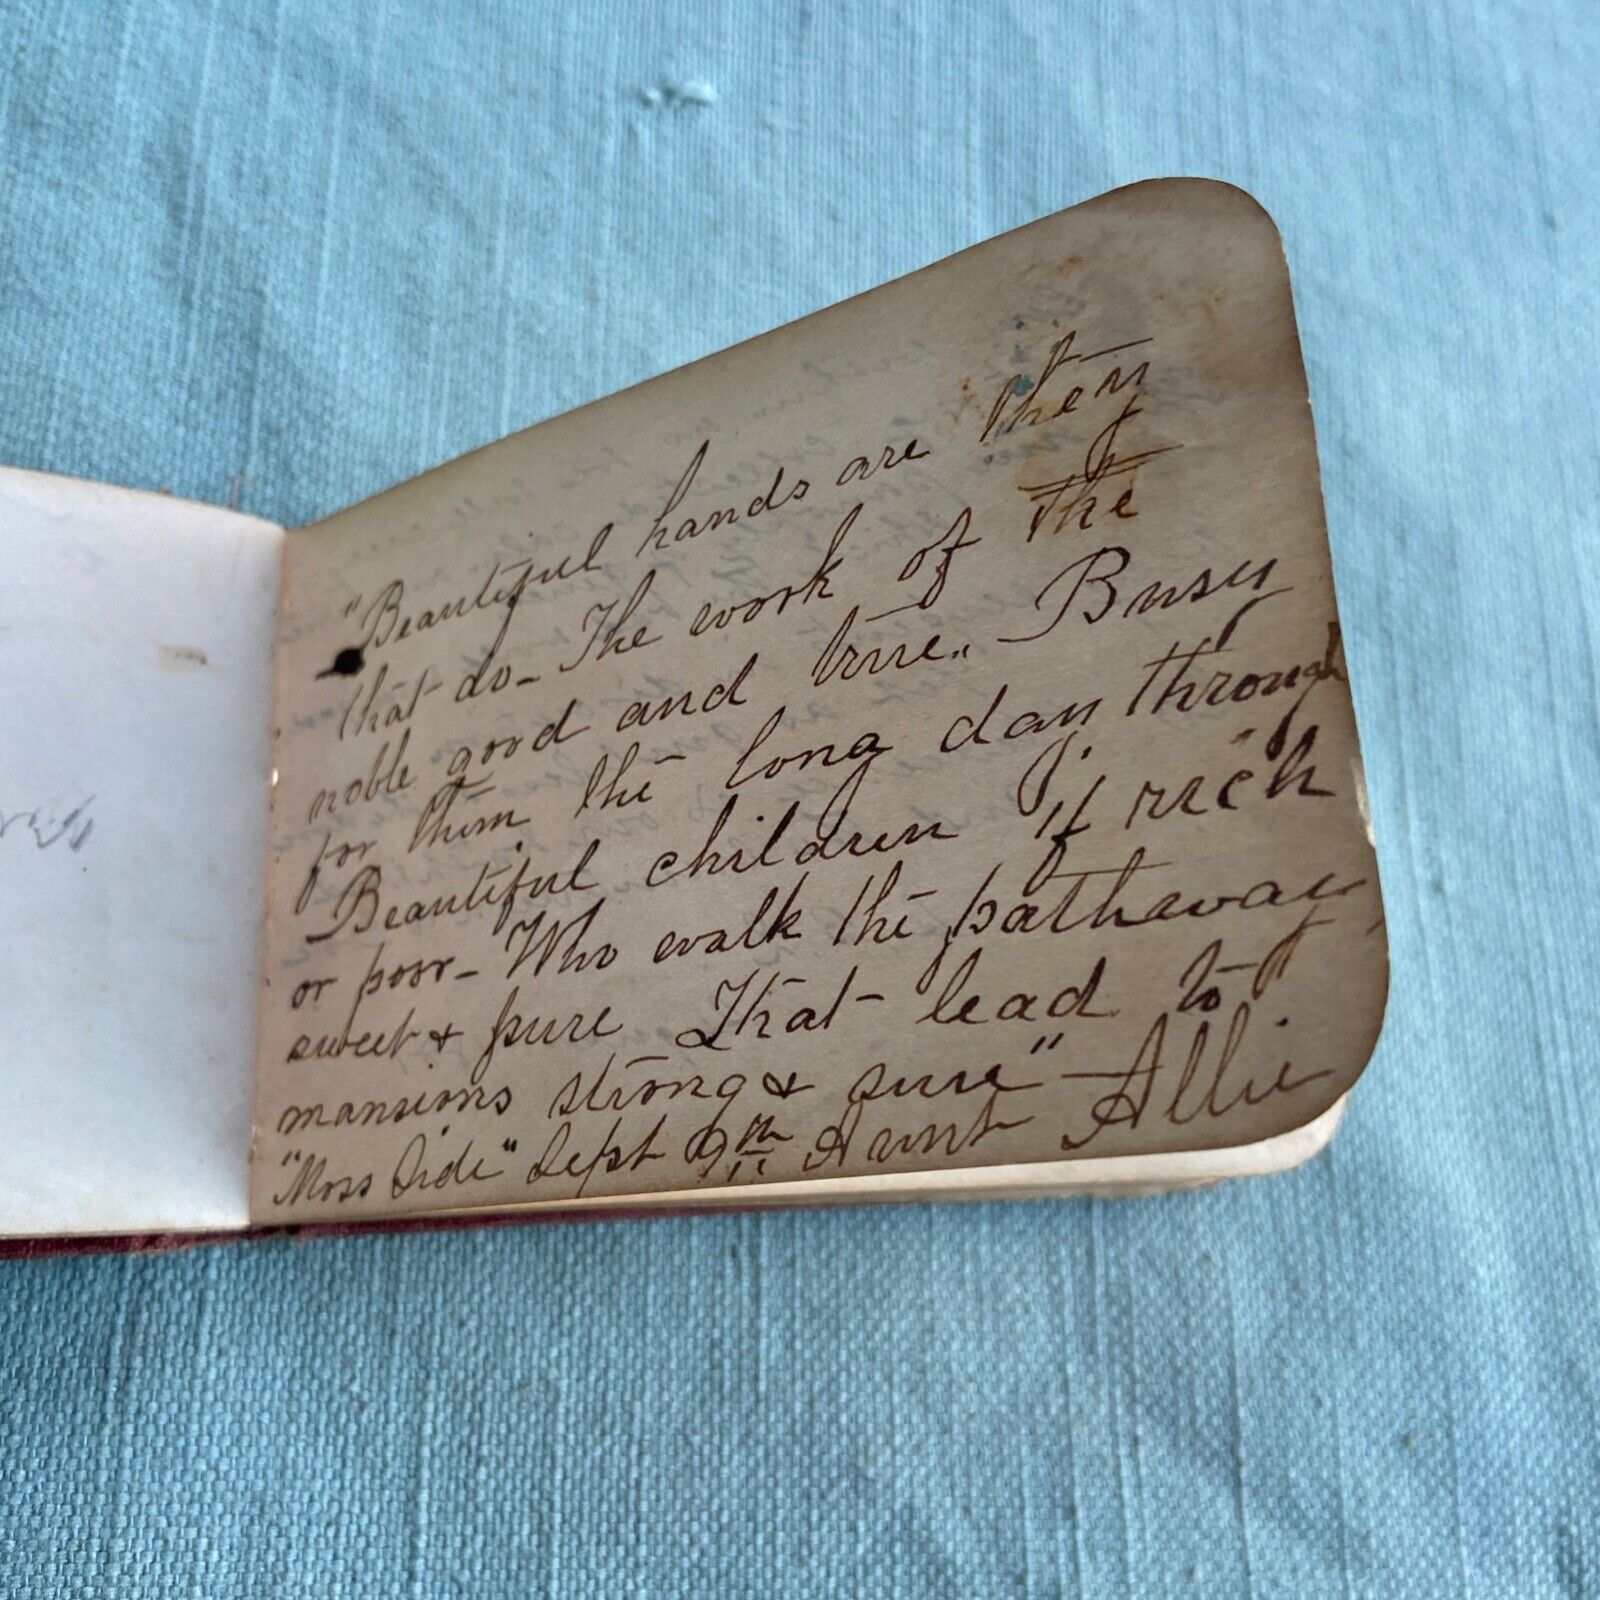 "Beautiful hands are they
that do - The work of the
noble good and true.. - Busy
for them the long day through
Beautiful children if rich
or poor - Who walk the pathaway
sweet & pure That lead to
mansions strong & sure" - Allie
"Moss Side" Sept 9th Aunt